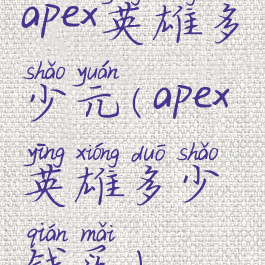 apex英雄多
shǎo yuán
少元(apex
yīng xióng duō shǎo
英雄多少
qián mǎi
钱买)